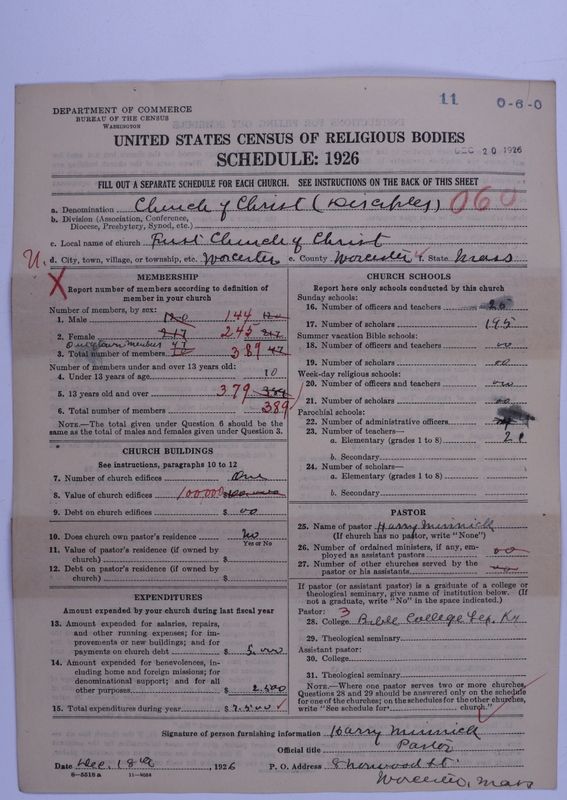 11 0-6-0
DEPARTMENT OF COMMERCE
BUREAU OF THE CENSUS
WASHINGTON
UNITED STATES CENSUS OF RELIGIOUS BODIES
DEC 20 1926
SCHEDULE: 1926
FILL OUT A SEPARATE SCHEDULE FOR EACH CHURCH. SEE INSTRUCTIONS ON THE BACK OF THIS SHEET
a. Denomination Church of Christ (Disciples) 060
b. Division (Association, Conference,
Diocese, Presbytery, Synod, etc.)
c. Local name of church First Church of Christ
U. d. City, town, village, or township, etc. Worcester e. County Worcester 4 f. State Mass
X
MEMBERSHIP
Report number of members according to definition of
member in your church
Number of members, by sex:
1. Male 120 144 120
2. Female 217 245 217
Out of town members 47
3. Total number of members 389
Number of members under and over 13 years old:
4. Under 13 years of age 10
5. 13 years old and over 379
6. Total number of members 389
NOTE.—The total given under Question 6 should be
same as the total of males and females given under Question 3.
CHURCH BUILDINGS
See instructions, paragraphs 10 to 12
7. Number of church edifices One
8. Value of church edifices 100,000 $
9. Debt on church edifices $ 00
10. Does church own pastor's residence No
Yes or No
11. Value of pastor's residence (if owned by
church) $
12. Debt on pastor's residence (if owned by
church) $
EXPENDITURES
Amount expended by your church during last fiscal year
13. Amount expended for salaries, repairs,
and other running expenses; for im-
provements or new buildings; and for
payments on church debt $ 5.000
14. Amount expended for benevolences, in-
cluding home and foreign missions; for
denominational support; and for all
other purposes 2.500
15. Total expenditures during year $ 7.500
CHURCH SCHOOLS
Report here only schools conducted by this church
Sunday schools:
16. Number of officers and teachers 26
17. Number of scholars 195
Summer vacation Bible schools:
18. Number of officers and teachers 00
19. Number of scholars 00
Week-day religious schools:
20. Number of officers and teachers
21. Number of scholars 00
Parochial schools:
22. Number of administrative officers
23. Number of teachers—
a. Elementary (grades 1 to 8)
b. Secondary
24. Number of scholars—
a. Elementary (grades 1 to 8)
b. Secondary
PASTOR
25. Name of pastor Harry Minnick
(If church has no pastor, write "None")
26. Number of ordained ministers, if any, em-
ployed as assistant pastors 00
27. Number of other churches served by the
pastor or his assistants
If pastor (or assistant pastor) is a graduate of a college or
theological seminary, give name of institution below. (If
not a graduate, write "No" in the space indicated.)
Pastor: 3
28. College Bible College Lex. Ky
29. Theological seminary
Assistant pastor:
30. College
31. Theological seminary
NOTE.—Where one pastor serves two or more churches,
Questions 28 and 29 should be answered only on the schedule
for one of the churches; on the schedules for the other churches,
write "See schedule for church."
Signature of person furnishing information Harry Minnick
Official title Pastor
Date Dec. 18th, 1926 P. O. Address Sherwood St.
8—5516 a 11—9034
Worcester, Mass